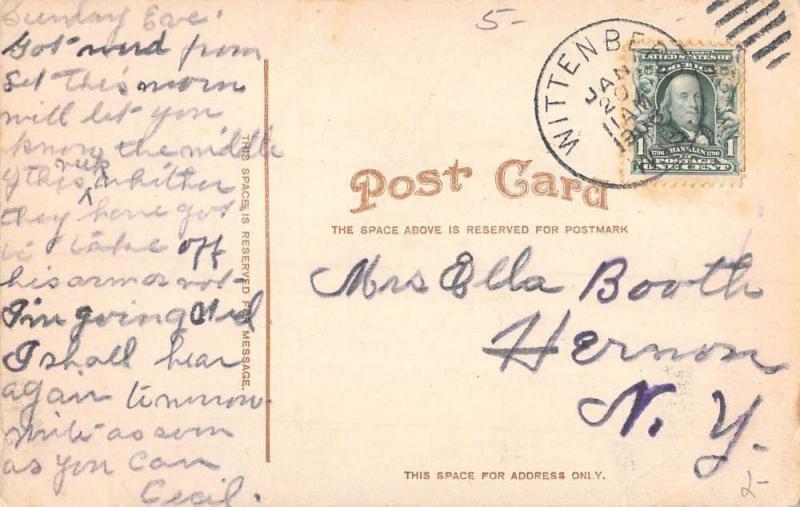 Sunday Eve.
Got word from
Set this morn
will let you
know the middle
of this week whither
they have got
to take off
his arm or not.
I'm going Wed.
I shall hear
again tomorrow.
write as soon
as you can
Cecil.
THIS SPACE IS RESERVED FOR MESSAGE.
5-
WITTENBE
JAN
20
11 AM
UNITED STATES OF
AMERICA
1
1706 FRANKLIN 1790
POSTAGE
ONE CENT
1
Post Card
THE SPACE ABOVE IS RESERVED FOR POSTMARK
Mrs Ella Booth
Hermon
N. Y.
THIS SPACE FOR ADDRESS ONLY.
2-